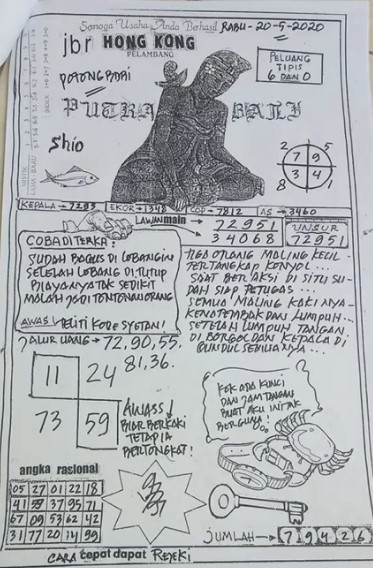 Semoga Usaha Anda Berhasil
RABU-20-5-2020
jbr HONG KONG
PALEMBANG
PELUANG
TIPIS
6 DAN 0
POTONG BABI
PUTRA BALI
Shio
2 5
7 9
3 4
8 1
KEPALA → 7293
EKOR → 1348
COP → 7812
AS → 3460
LAWAN main
72951
34068
UNSUR
72951
COBA DI TERKA:
SUDAH BAGUS DI LOBANGIN
SETELAH LOBANG DI TUTUP
BIAYANYA TAK SEDIKIT
MALAH JADI TONTONAN ORANG
AWAS! TELITI KODE SYETAN!
TIGA ORANG MALING KECIL
TERTANGKAP KONYOL...
SAAT BERAKSI DI SITU SU-
DAH SIAP PETUGAS..
SEMUA MALING KAKI NYA-
KENA TEMBAK DAN LUMPUH...
SETELAH LUMPUH TANGAN
DI BORGOL DAN KEPALA DI
GUNDUL SEMUANYA...
JALUR UANG → 72,90,55.
81,36.
11 24
73 59
AWASS!
BIAR BERKAKI
TETAP IA
BERTONGKAT!
KOK ADA KUNCI
DAN JAM TANGAN
BUAT AKU INI TAK
BERGUNA!
angka rasional
05 27 01 22 18
41 55 37 95 71
67 09 53 62 42
31 77 20 14 99
JUMLAH → 7 9 4 2 6
CARA cepat dapat REJEKI